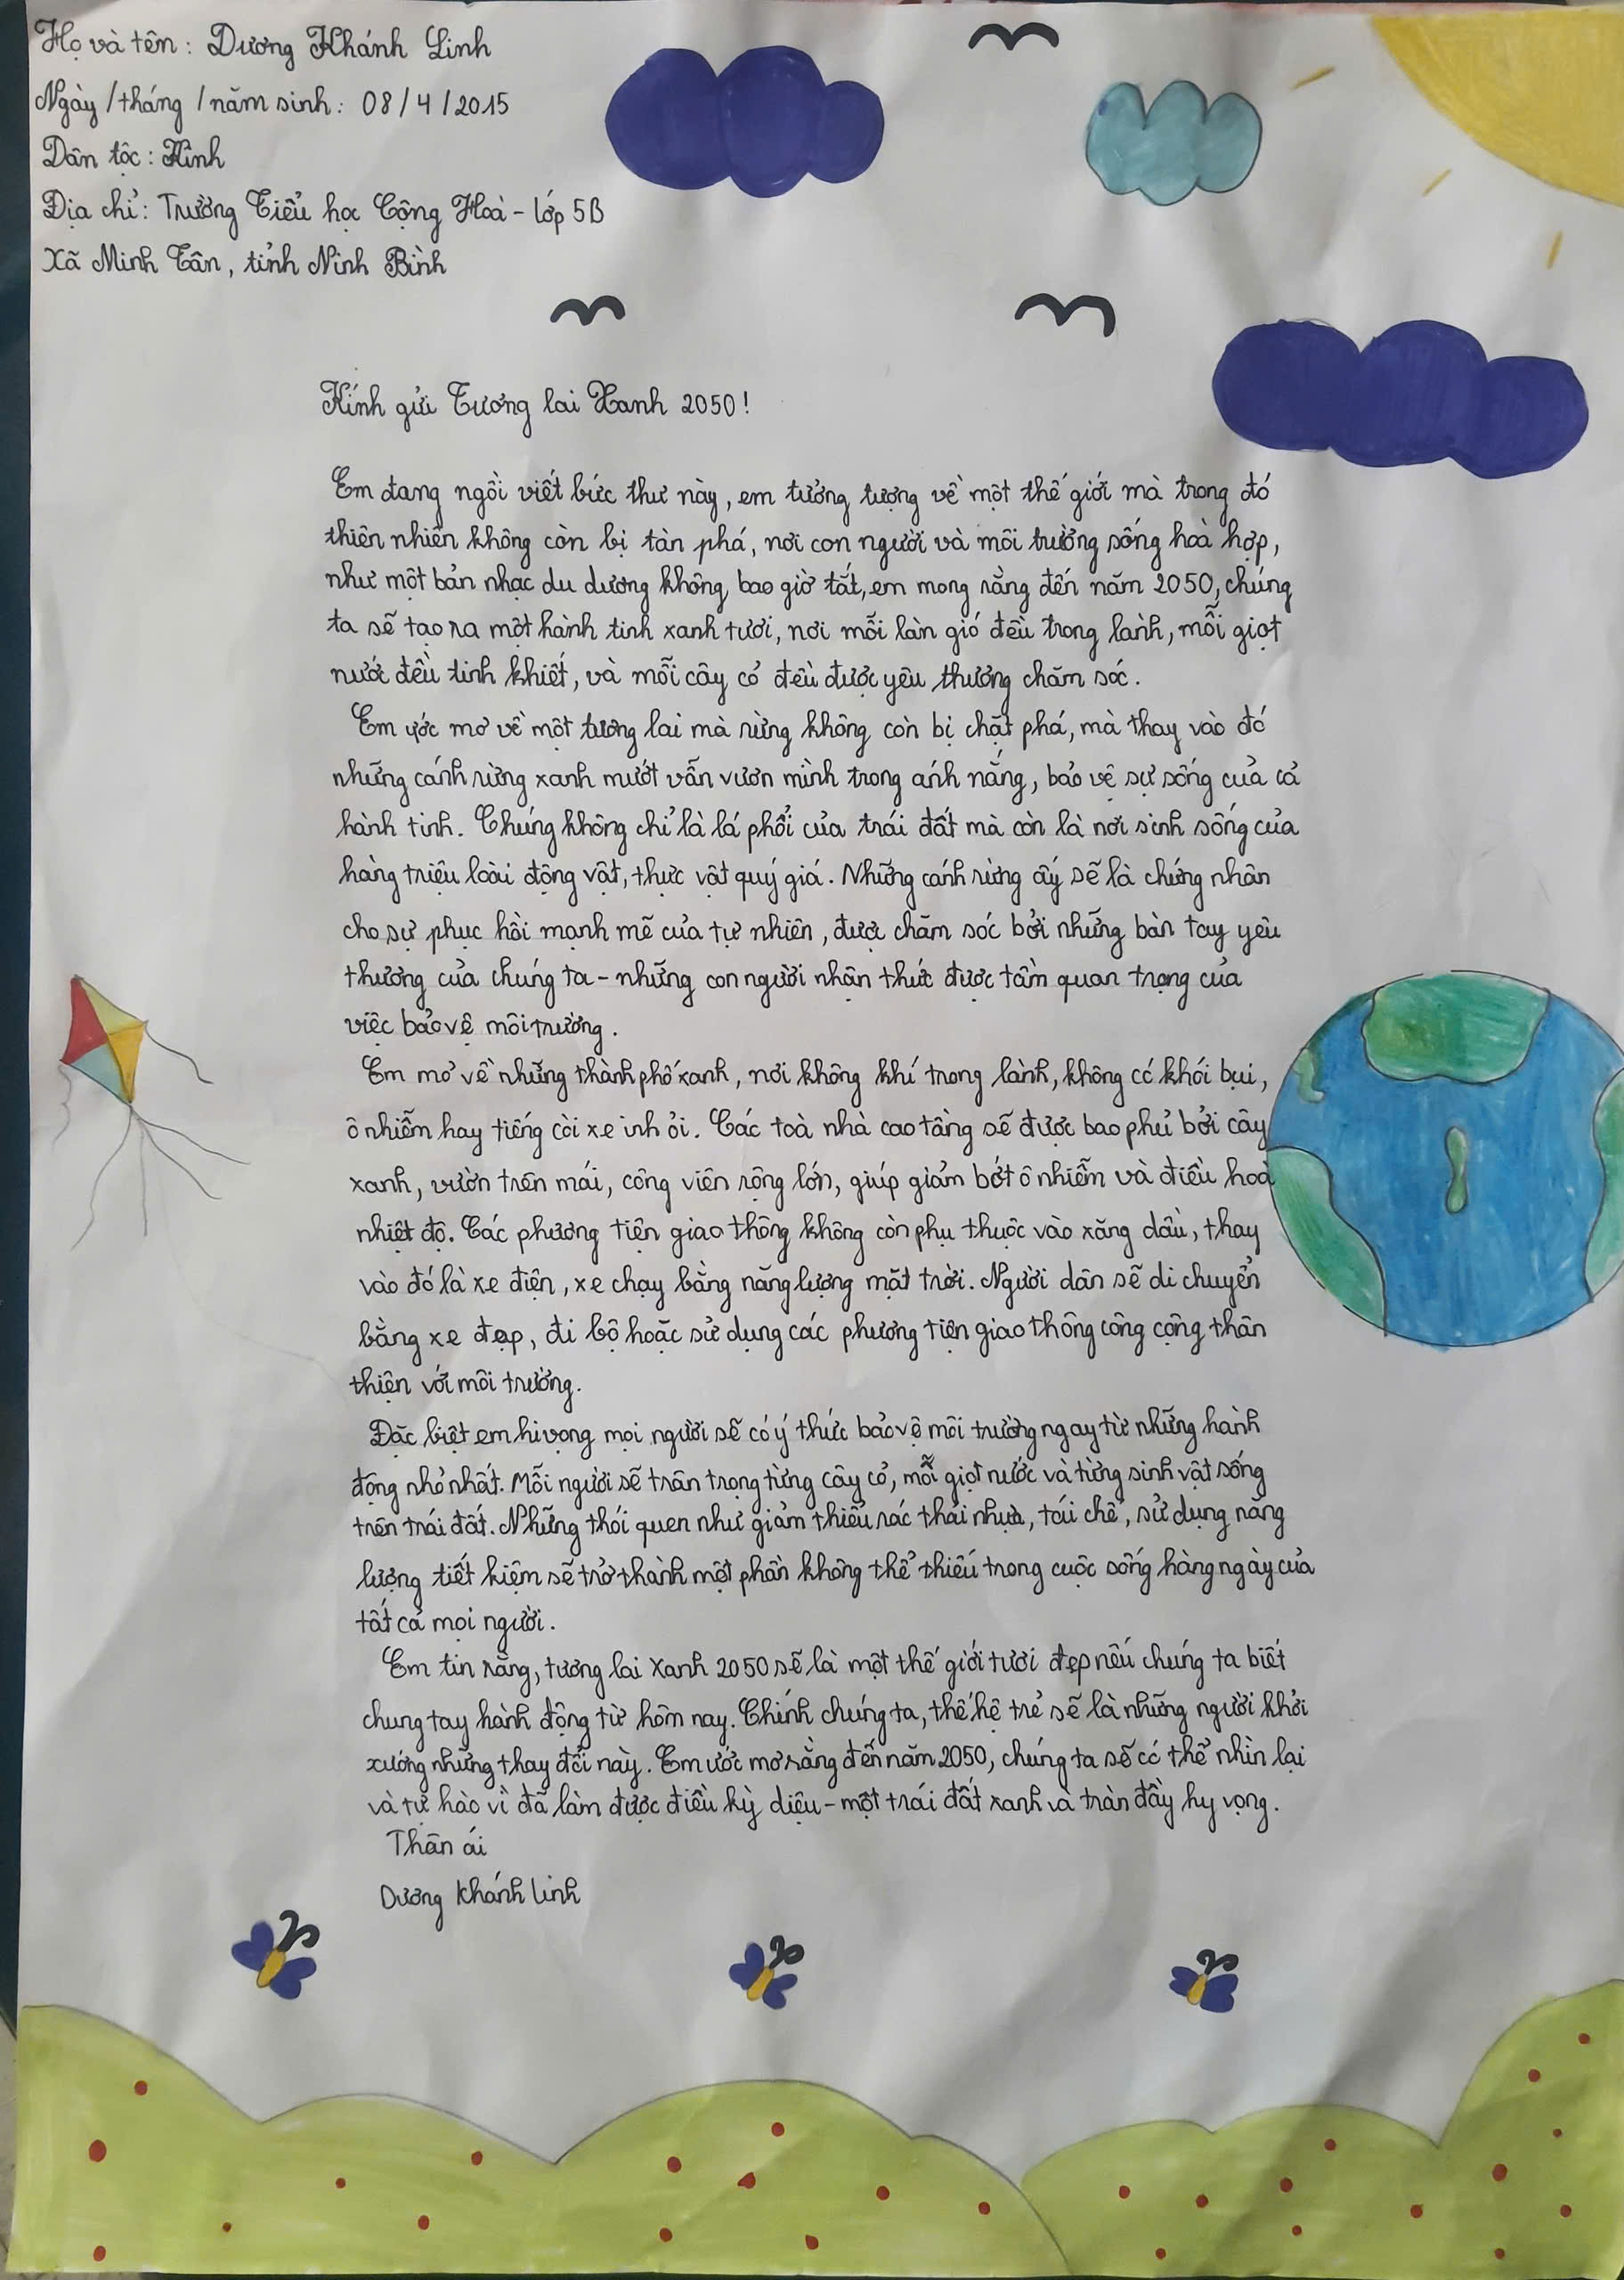 Họ và tên: Dương Khánh Linh
Ngày/tháng/năm sinh: 08/4/2015
Dân tộc: Kinh
Địa chỉ: Trường Tiểu học Cộng Hoà - lớp 5B
Xã Minh Tân, tỉnh Ninh Bình
Kính gửi Tương lai Xanh 2050!
Em đang ngồi viết bức thư này, em tưởng tượng về một thế giới mà trong đó
thiên nhiên không còn bị tàn phá, nơi con người và môi trường sống hoà hợp,
như một bản nhạc du dương không bao giờ tắt, em mong rằng đến năm 2050, chúng
ta sẽ tạo ra một hành tinh xanh tươi, nơi mỗi làn gió đều trong lành, mỗi giọt
nước đều tinh khiết, và mỗi cây cỏ đều được yêu thương chăm sóc.
Em ước mơ về một tương lai mà rừng không còn bị chặt phá, mà thay vào đó
những cánh rừng xanh mướt vẫn vươn mình trong ánh nắng, bảo vệ sự sống của cả
hành tinh. Chúng không chỉ là lá phổi của trái đất mà còn là nơi sinh sống của
hàng triệu loài động vật, thực vật quý giá. Những cánh rừng ấy sẽ là chứng nhân
cho sự phục hồi mạnh mẽ của tự nhiên, được chăm sóc bởi những bàn tay yêu
thương của chúng ta - những con người nhận thức được tầm quan trọng của
việc bảo vệ môi trường.
Em mơ về những thành phố xanh, nơi không khí trong lành, không có khói bụi,
ô nhiễm hay tiếng còi xe inh ỏi. Các toà nhà cao tầng sẽ được bao phủ bởi cây
xanh, vườn trên mái, công viên rộng lớn, giúp giảm bớt ô nhiễm và điều hoà
nhiệt độ. Các phương tiện giao thông không còn phụ thuộc vào xăng dầu, thay
vào đó là xe điện, xe chạy bằng năng lượng mặt trời. Người dân sẽ di chuyển
bằng xe đạp, đi bộ hoặc sử dụng các phương tiện giao thông công cộng thân
thiện với môi trường.
Đặc biệt em hi vọng mọi người sẽ có ý thức bảo vệ môi trường ngay từ những hành
động nhỏ nhất. Mỗi người sẽ trân trọng từng cây cỏ, mỗi giọt nước và từng sinh vật sống
trên trái đất. Những thói quen như giảm thiểu rác thải nhựa, tái chế, sử dụng năng
lượng tiết kiệm sẽ trở thành một phần không thể thiếu trong cuộc sống hàng ngày của
tất cả mọi người.
Em tin rằng, tương lai Xanh 2050 sẽ là một thế giới tươi đẹp nếu chúng ta biết
chung tay hành động từ hôm nay. Chính chúng ta, thế hệ trẻ sẽ là những người khởi
xướng những thay đổi này. Em ước mơ rằng đến năm 2050, chúng ta sẽ có thể nhìn lại
và tự hào vì đã làm được điều kỳ diệu - một trái đất xanh và tràn đầy hy vọng.
Thân ái
Dương Khánh Linh